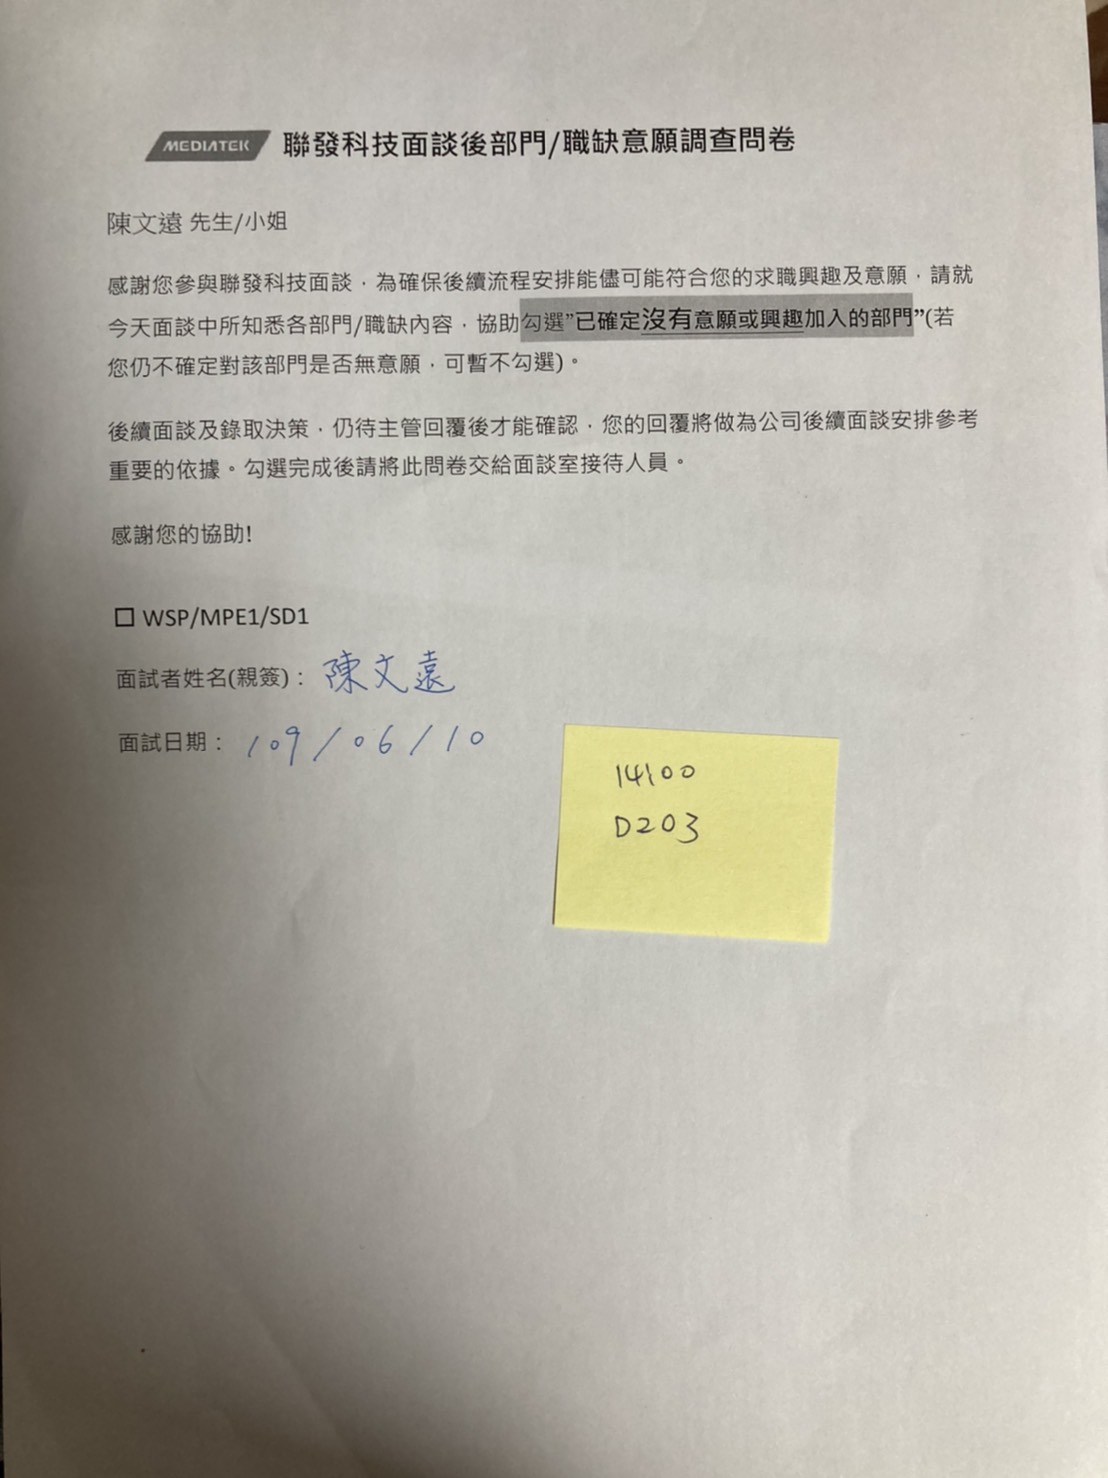 MEDIATEK 聯發科技面談後部門/職缺意願調查問卷
陳文遠 先生/小姐
感謝您參與聯發科技面談，為確保後續流程安排能儘可能符合您的求職興趣及意願，請就
今天面談中所知悉各部門/職缺內容，協助勾選”已確定沒有意願或興趣加入的部門”(若
您仍不確定對該部門是否無意願，可暫不勾選)。
後續面談及錄取決策，仍待主管回覆後才能確認，您的回覆將做為公司後續面談安排參考
重要的依據。勾選完成後請將此問卷交給面談室接待人員。
感謝您的協助!
☐ WSP/MPE1/SD1
面試者姓名(親簽)： 陳文遠
面試日期： 109/06/10
14:00
D203